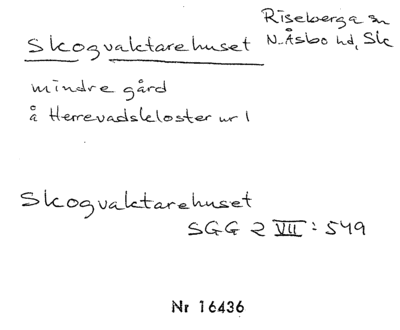 Skogvaktarehuset
Riseberga sn
N. Åsbo hd, Sk
mindre gård
å Herrevadskloster nr 1
Skogvaktarehuset
SGG 2 VII: 549
Nr 16436